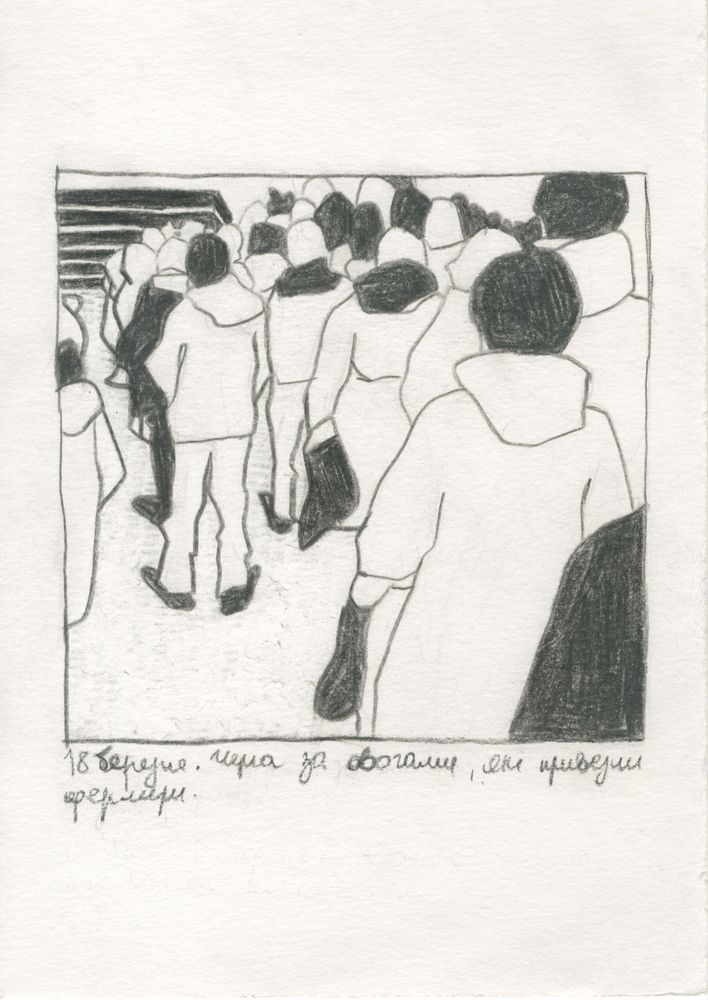 18 березня. Черга за овочами, які привезли
фермери.